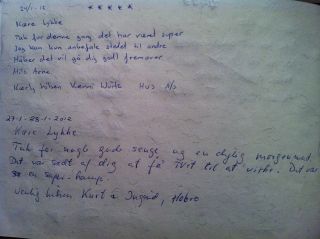 24/1-12 * * * * *
Kære Lykke
Tak for denne gang det har været super
Jeg kan kun anbefale stedet til andre
Håber det vil gå dig godt fremover
Hils Arne
Kærlig hilsen Kenni Hus A/S
27-1-28-1-2012
Kære Lykke
Tak for nogle gode senge og en dejlig morgenmad.
Det var sødt af dig at få TV'et til at virke. Det var
en super-kamp.
Venlig hilsen Kurt & Ingrid, Hobro